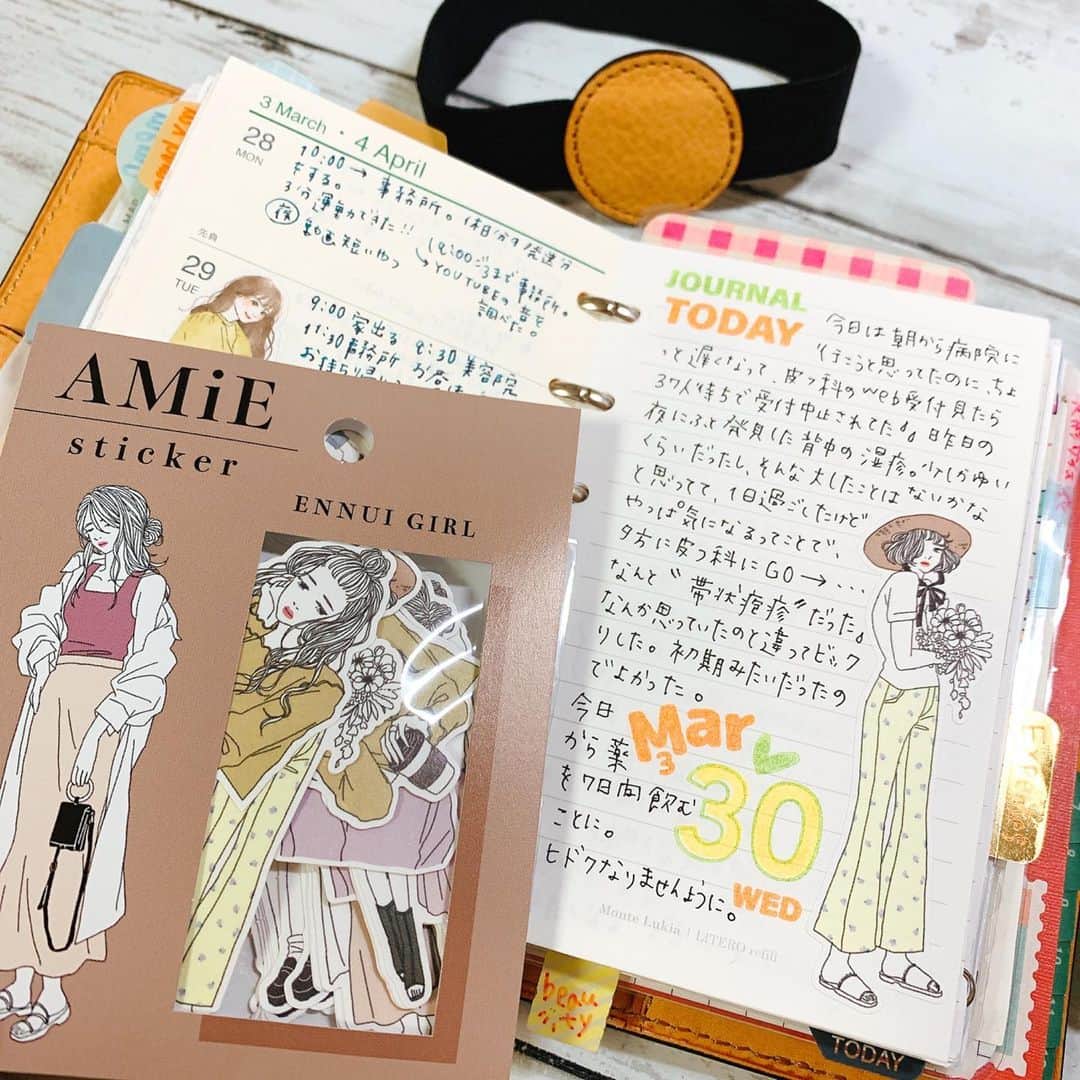 3 March・4 April
28
MON
10:00→事務所。休日分の発送分
をする。
3分運動できた!!
18:00ごろまで事務所。
夜
動画短いゆっ
YOUTUBEの音を
調べた。
先負
29
TUE
9:00 家出る
11:30 事務所
8:30 美容院
AMiE
sticker
ENNUI GIRL
JOURNAL
TODAY
今日は朝から病院に
行こうと思ってたのに、ちょ
っと遅くなって、皮フ科のweb受付見たら
37人待ちで受付中止されてた。昨日の
夜にふと発見した背中の湿疹。少しかゆい
くらいだったし、そんな大したことはないかな
と思ってて、1日過ごしたけど
やっぱ気になるってことで、
夕方に皮フ科にGO→...
なんと"帯状疱疹"だった。
なんか思っていたのと違ってビック
リした。初期みたいだったの
でよかった。
今日
から薬
を7日間飲む
ことに。
ヒドクなりませんように。
Mar
3
30
WED
Monte Lukia | LITERO refill
beau
ty
TODAY